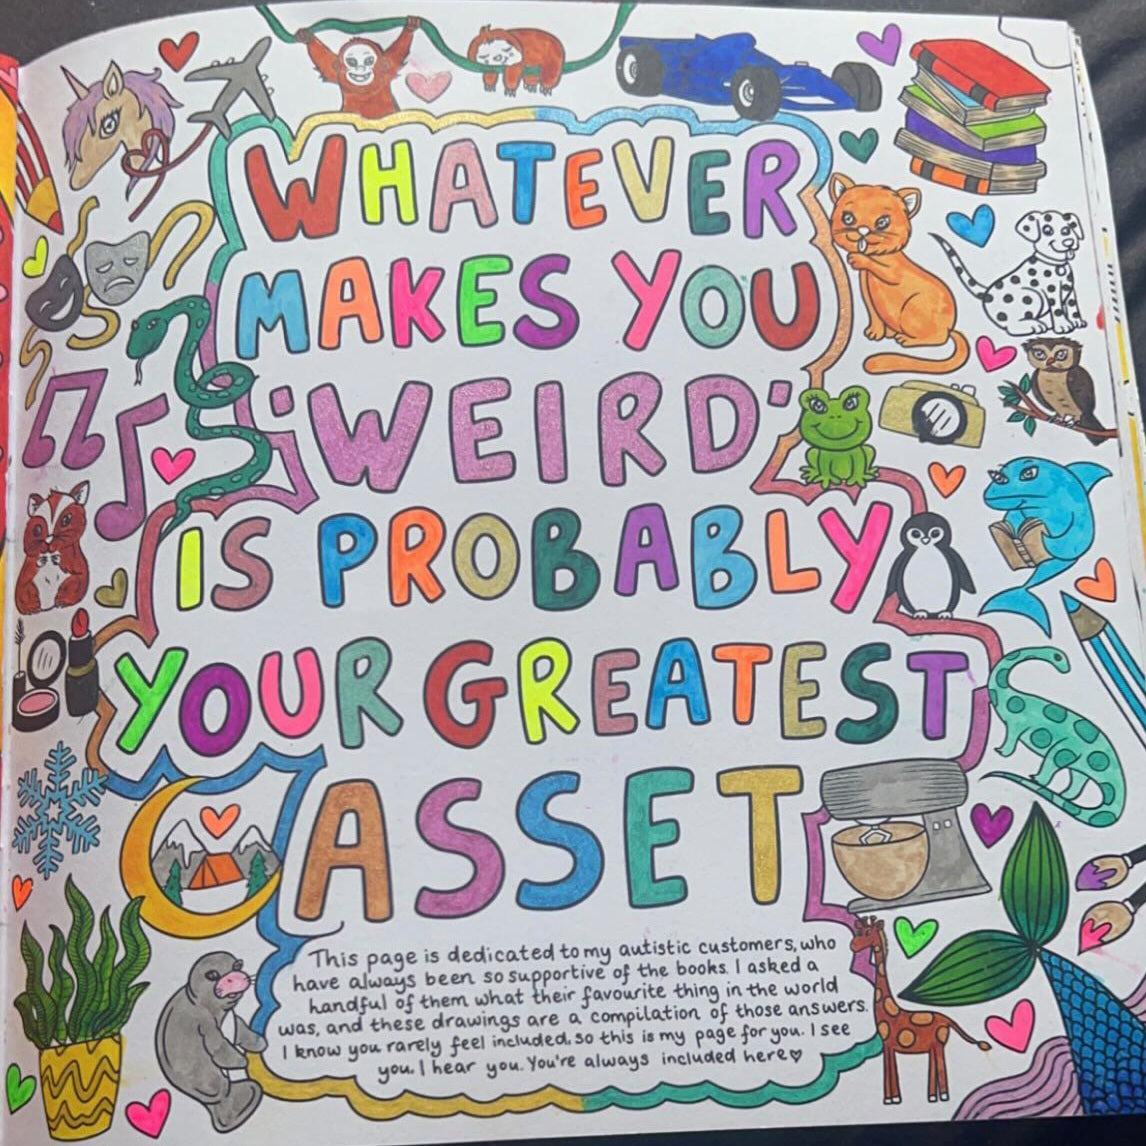 WHATEVER
MAKES YOU
'WEIRD'
IS PROBABLY
YOUR GREATEST
ASSET
This page is dedicated to my autistic customers, who
have always been so supportive of the books. I asked a
handful of them what their favourite thing in the world
was, and these drawings are a compilation of those answers.
I know you rarely feel included, so this is my page for you. I see
you. I hear you. You're always included here♡